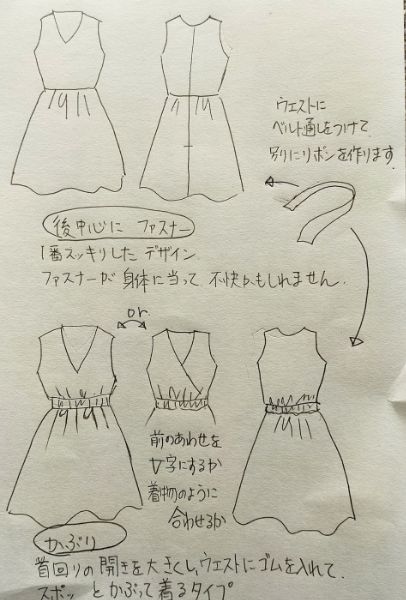 ウェストに
ベルト通しをつけて
別にリボンを作ります。
後中心に ファスナー
1番スッキリした デザイン
ファスナーが 身体に当って 不快かもしれません。
or
前のあわせを
V字にするか
着物のように
合わせるか
かぶり
首回りの開きを大きくし、ウェストにゴムを入れて、
スポッ とかぶって着るタイプ